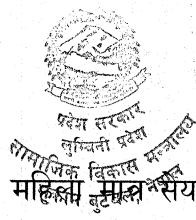 प्रदेश सरकार
लुम्बिनी प्रदेश
सामाजिक विकास मन्त्रालय
बुटवल, नेपाल